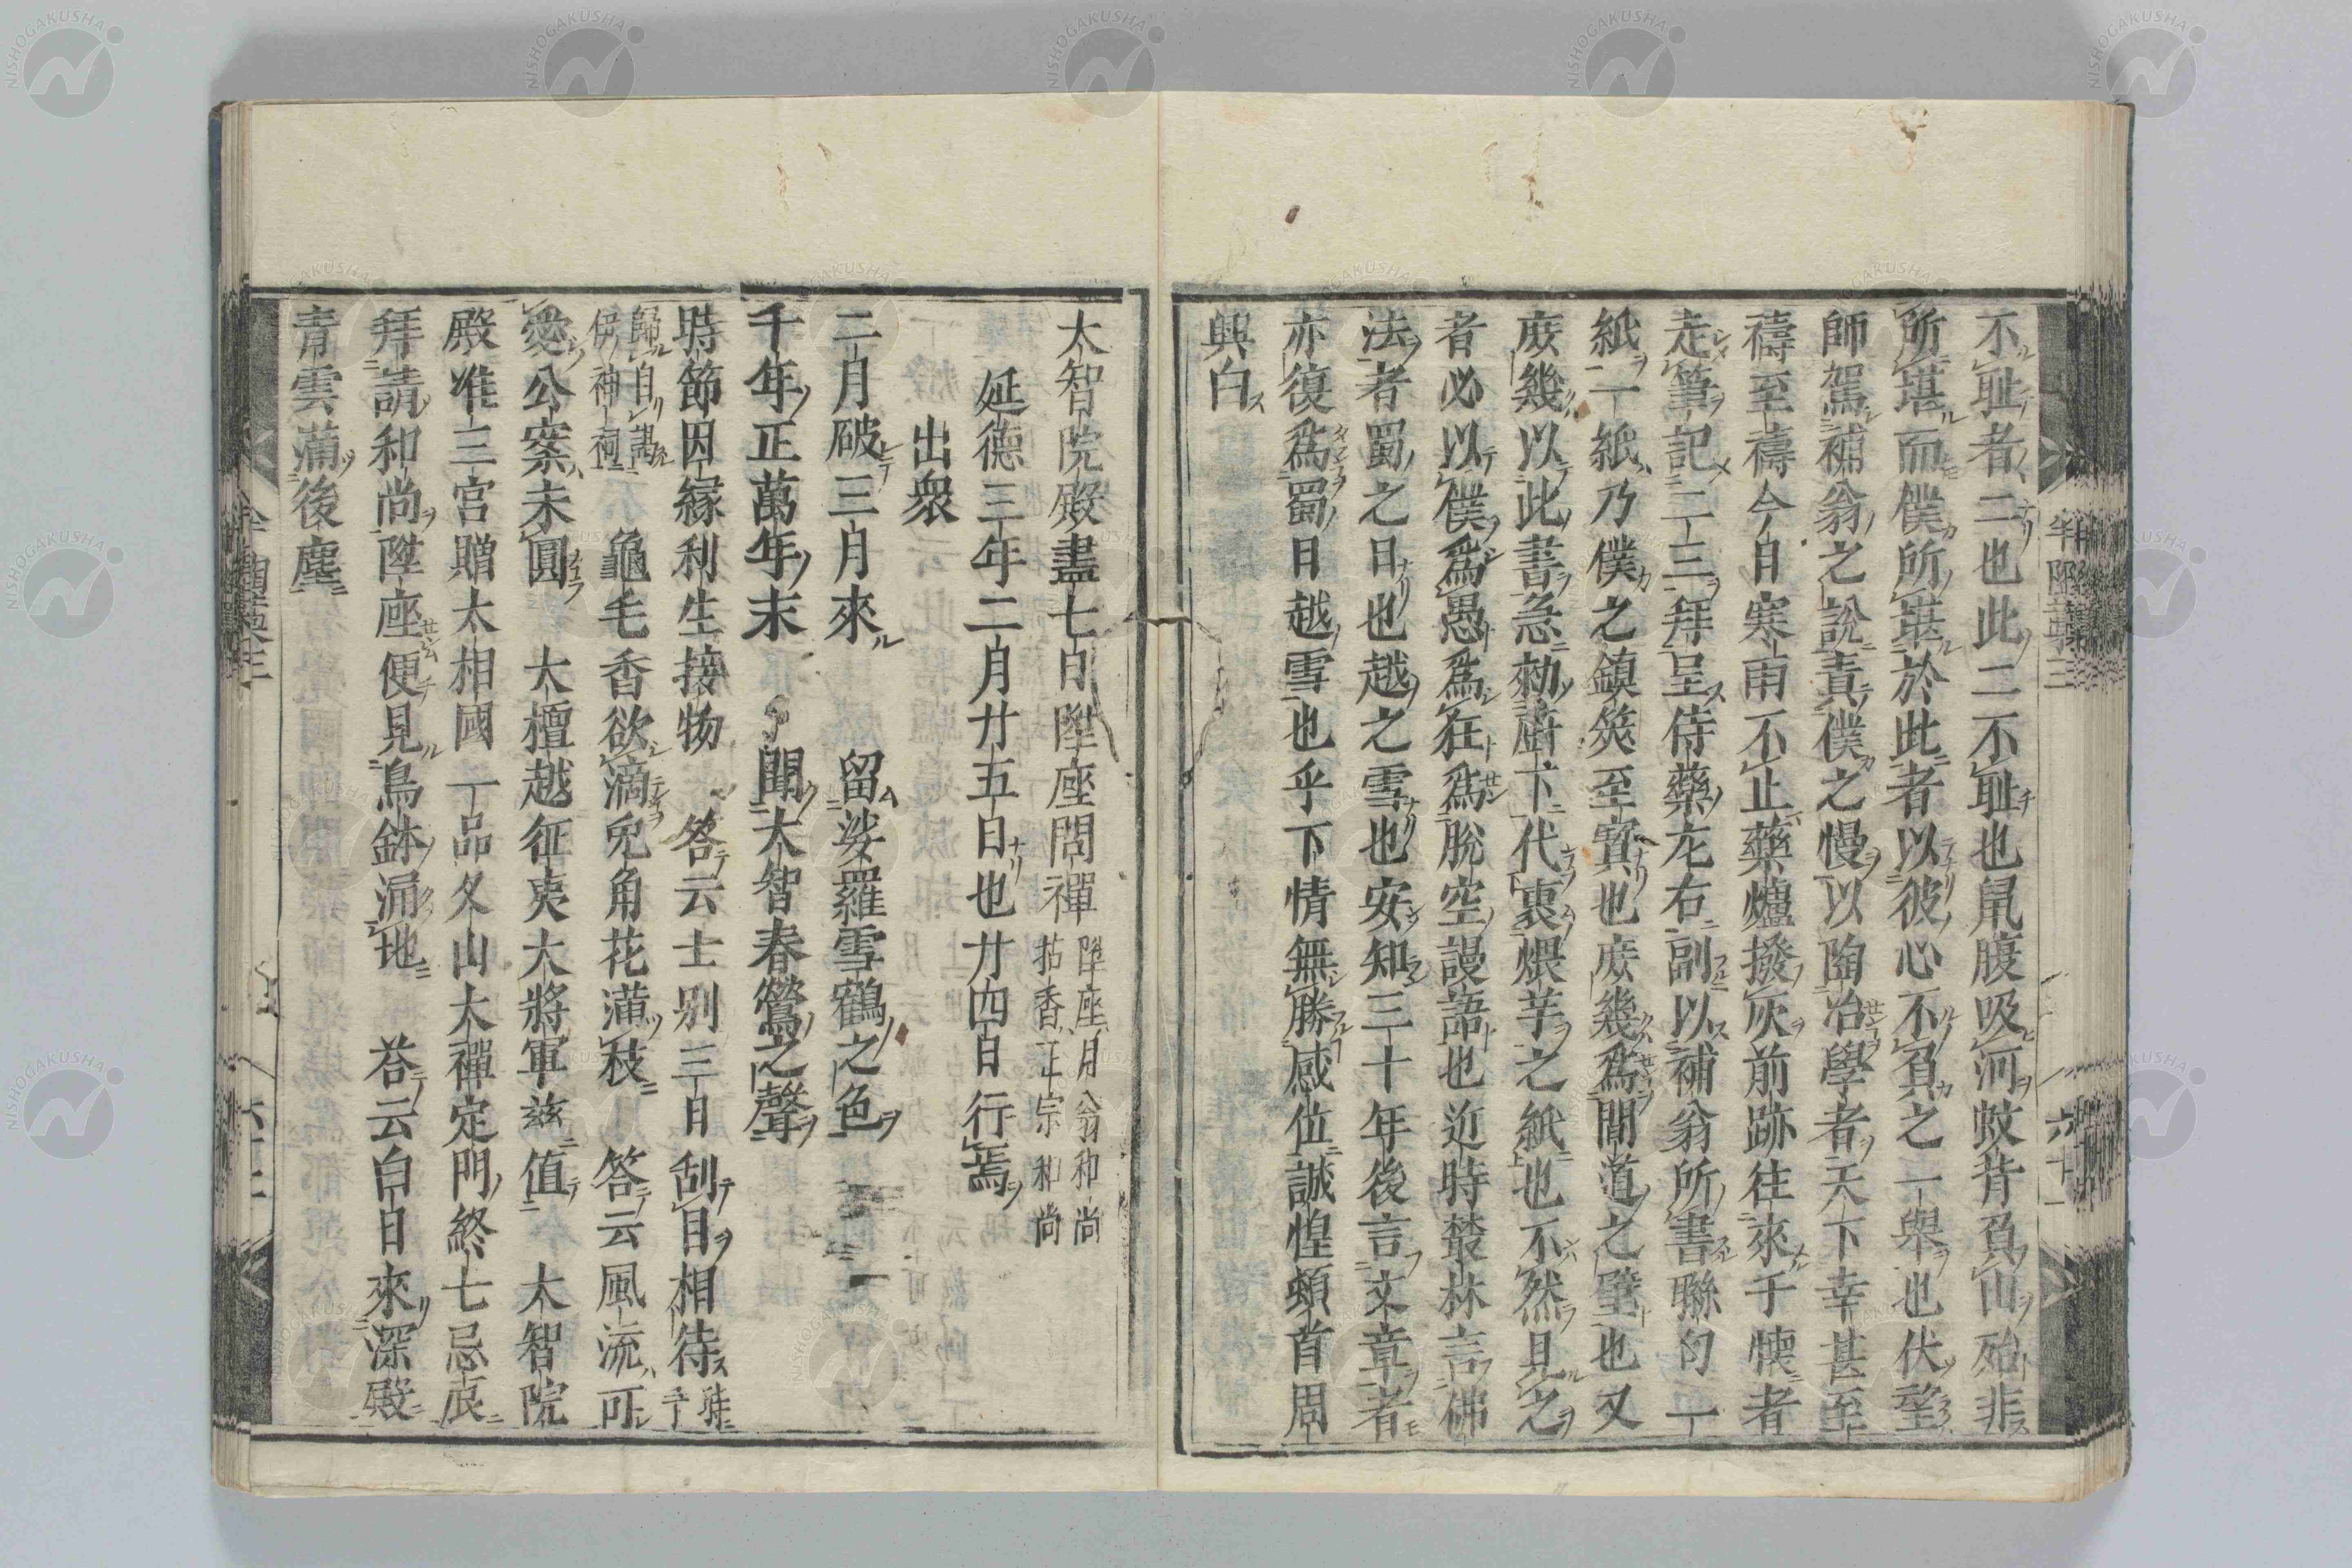 不耻者二也此二不耻也鼠腹吸河蚊背負山殆非
所堪而僕所堪於此者以彼心不負之一舉也伏望
師駕補翁之說責僕之慢以陶冶學者天下幸甚至
禱至禱今日寒雨不止藥爐撥灰前跡往來于懷者
走筆記二三拜呈侍藥左右副以補翁所書聯句一
紙一紙乃僕之鎮筴至寶也庶幾為閒道之壁也又
庶幾以此書急効廚下代裏煨芋之紙也不然見之
者必以僕為愚為狂為脫空謾語也近時叢林言佛
法者蜀之日也越之雪也安知三十年後言文章者
亦復為蜀日越雪也乎下情無勝感位誠惶頓首周
興白
大智院殿盡七日陞座問禪
陞座月翁和尚
拈香正宗和尚
延德三年二月廿五日也廿四日行焉
出衆
二月破三月來 留娑羅雪鶴之色
千年正萬年末 聞大智春鶯之聲
時節因緣利生接物 答云士別三日刮目相待
歸自謁
伊神祠
龜毛香欲滴兔角花滿枝 答云風流可
愛公案未圓 大檀越征夷大將軍茲值 大智院
殿准三宮贈太相國一品久山大禪定門終七忌辰
拜請和尚陞座便見鳥鉢涌地 答云白日來深殿
青雲蒲後塵